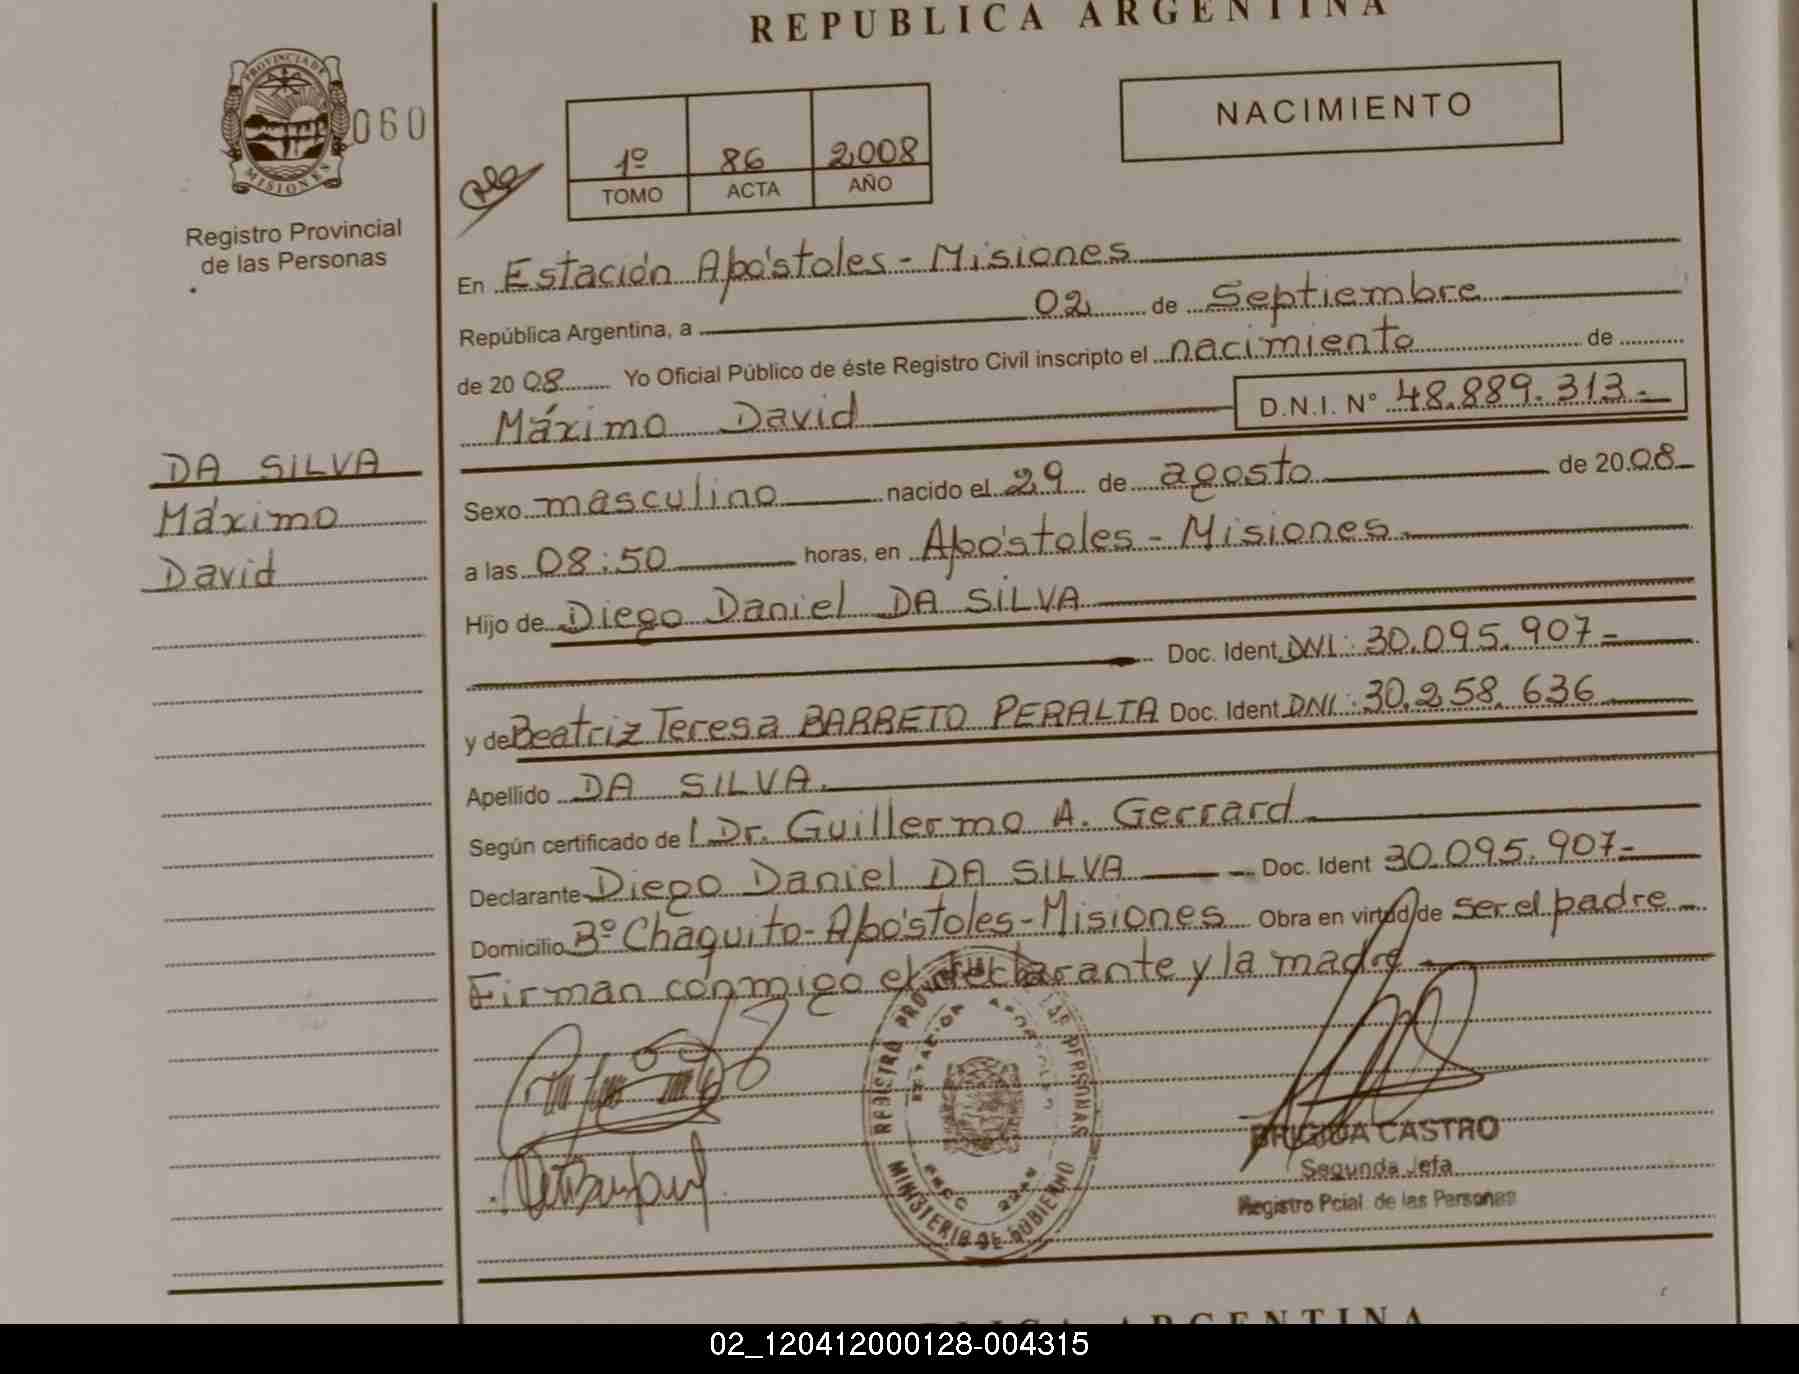 REPUBLICA ARGENTINA
PROVINCIA DE MISIONES
060
Registro Provincial
de las Personas
1º 86 2008
TOMO ACTA AÑO
NACIMIENTO
En Estación Apóstoles - Misiones
República Argentina, a 02 de Septiembre
de 2008 Yo Oficial Público de éste Registro Civil inscripto el nacimiento de
Máximo David D.N.I. N° 48.889.313.-
DA SILVA
Máximo
David
Sexo masculino nacido el 29 de agosto de 2008
a las 08:50 horas, en Apóstoles - Misiones
Hijo de Diego Daniel DA SILVA
Doc. Ident DNI: 30.095.907-
y de Beatriz Teresa BARRETO PERALTA Doc. Ident DNI: 30.258.636
Apellido DA SILVA.
Según certificado de l Dr. Guillermo A. Gerrard
Declarante Diego Daniel DA SILVA Doc. Ident 30.095.907-
Domicilio Bº Chaquito - Apóstoles - Misiones Obra en virtud de ser el padre
Firman conmigo el declarante y la madre
REGISTRO DE LAS PERSONAS
MINISTERIO DE GOBIERNO
BRIGIDA CASTRO
Segunda Jefa
Registro Pcial. de las Personas
ARGENTINA
02_120412000128-004315